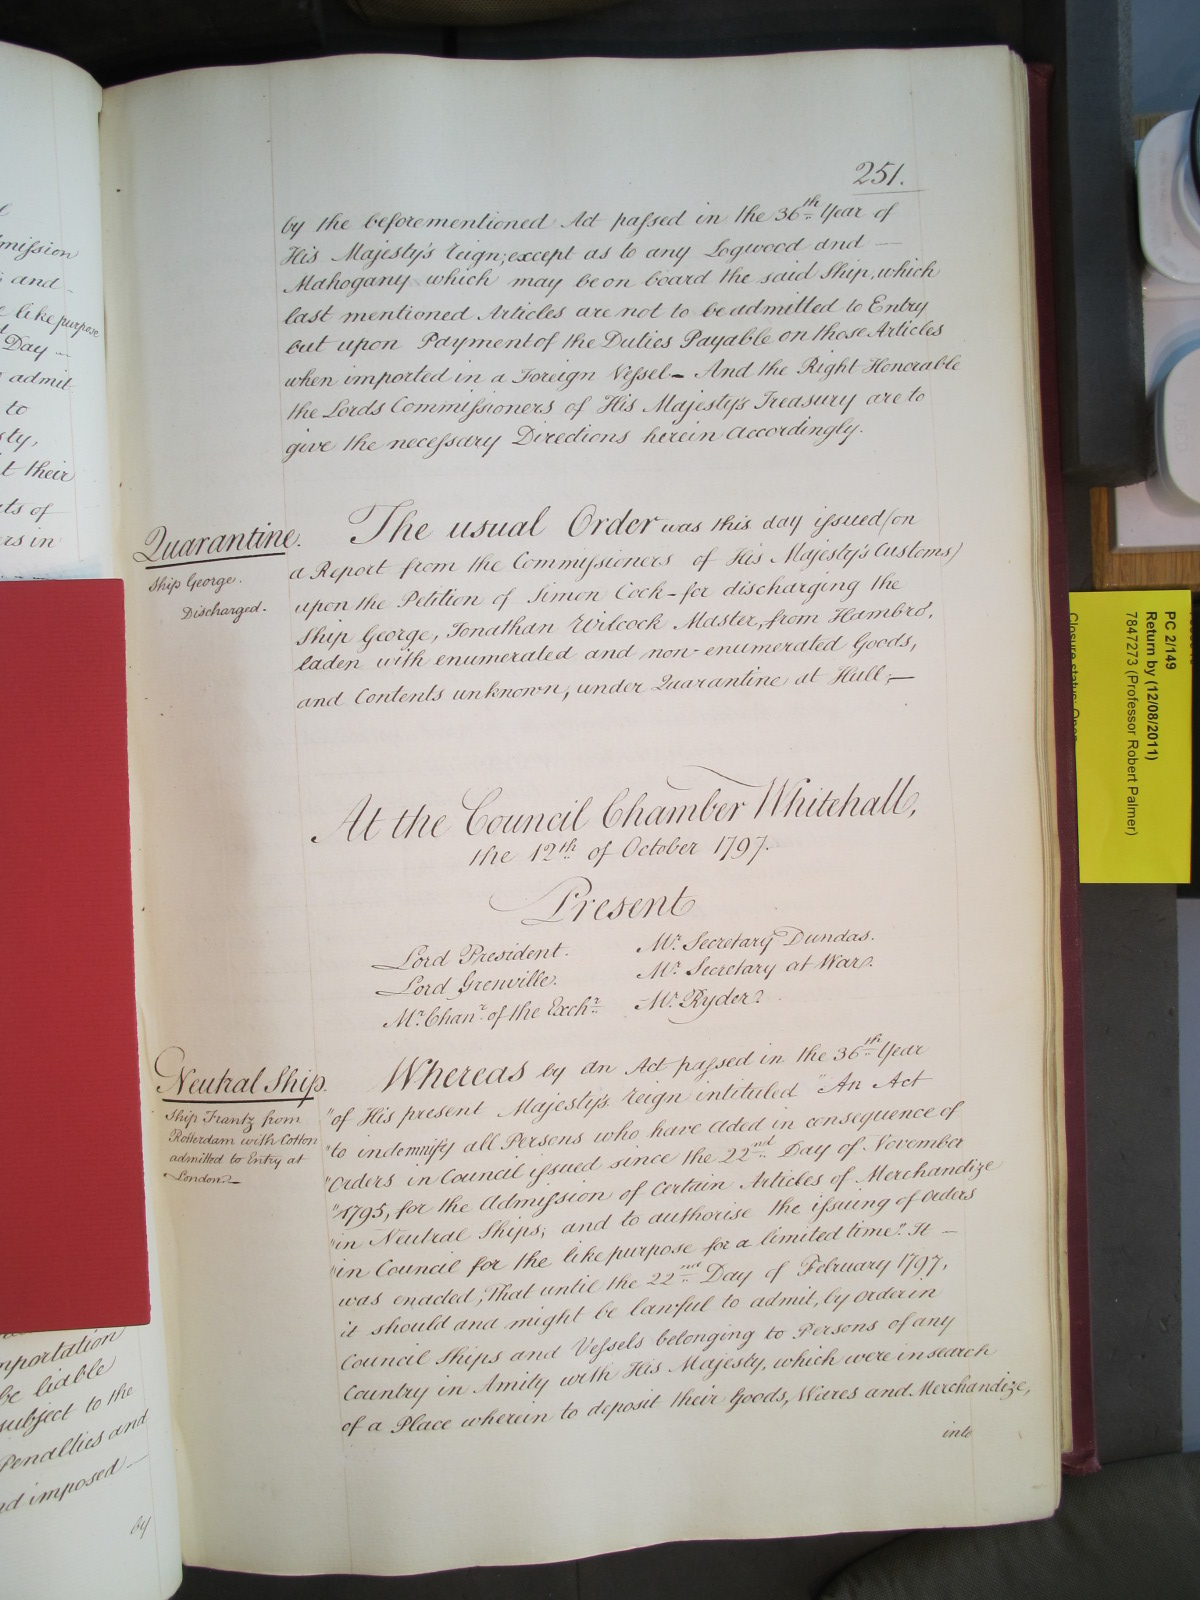 251.
by the beforementioned Act passed in the 36th Year of
His Majesty's Reign; except as to any Logwood and —
Mahogany which may be on board the said Ship, which
last mentioned Articles are not to be admitted to Entry
but upon Payment of the Duties Payable on those Articles
when imported in a Foreign Vessel – And the Right Honorable
the Lords Commissioners of His Majesty's Treasury are to
give the necessary Directions herein accordingly.
Quarantine.
Ship George.
Discharged.
The usual Order was this day issued (on
a Report from the Commissioners of His Majesty's Customs)
upon the Petition of Simon Cock – for discharging the
Ship George, Jonathan Wilcock Master, from Hambro',
laden with enumerated and non-enumerated Goods,
and Contents unknown, under Quarantine at Hull; —
At the Council Chamber Whitehall,
the 12th of October 1797.
Present
Lord President.
Lord Grenville.
Mr. Chanr. of the Exchr.
Mr. Secretary Dundas.
Mr. Secretary at War.
Mr. Ryder.
Neutral Ship.
Ship Frantz from
Rotterdam with Cotton
admitted to Entry at
London. —
Whereas by an Act passed in the 36th Year
"of His present Majesty's Reign intituled "An Act
"to indemnify all Persons who have acted in consequence of
"Orders in Council issued since the 22nd Day of November
"1795, for the Admission of Certain Articles of Merchandize
"in Neutral Ships; and to authorise the issuing of Orders
"in Council for the like purpose for a limited time". It —
was enacted, That until the 22nd Day of February 1797,
it should and might be lawful to admit, by order in
Council Ships and Vessels belonging to Persons of any
Country in Amity with His Majesty, which were in search
of a Place wherein to deposit their Goods, Wares and Merchandize,
into
mission
and –
like purpose
Day –
admit
to
t their
ts of
rs in
mportation
be liable
subject to the
Penalties and
nd imposed –
by
PC 2/149
Return by (12/08/2011)
7847273 (Professor Robert Palmer)
Closure status: Open